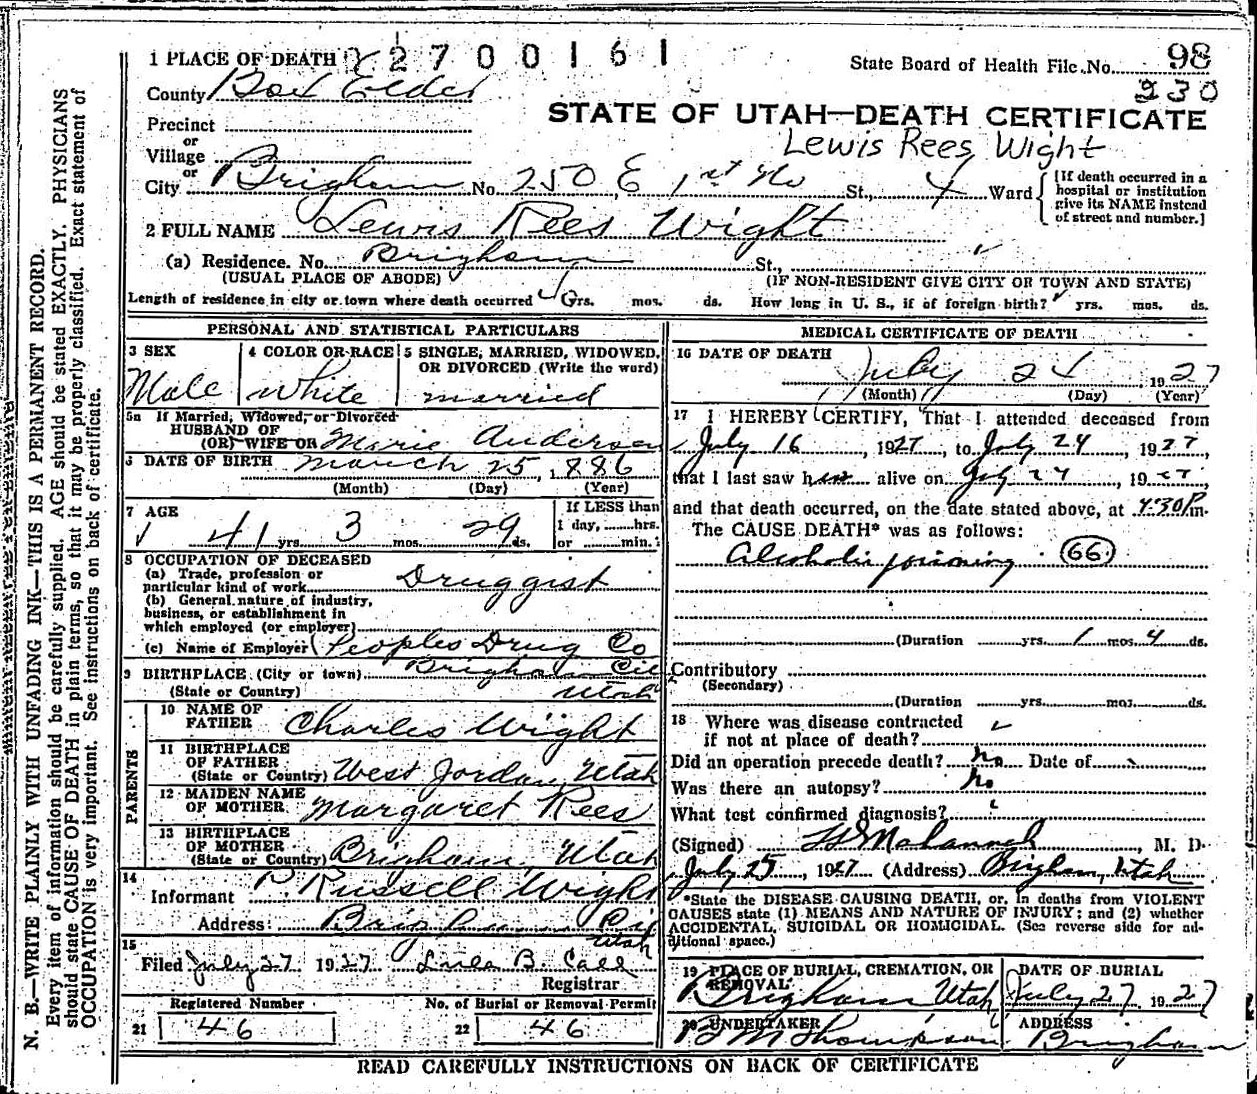 1 PLACE OF DEATH 2700161
State Board of Health File No. 98
230
County Box Elder
STATE OF UTAH—DEATH CERTIFICATE
Precinct
Lewis Rees Wight
or
Village
or
City Brigham No. 250 E 1st No St., 4 Ward
[If death occurred in a hospital or institution give its NAME instead of street and number.]
2 FULL NAME Lewis Rees Wight
(a) Residence. No. Brigham St.,
(USUAL PLACE OF ABODE) (IF NON-RESIDENT GIVE CITY OR TOWN AND STATE)
Length of residence in city or town where death occurred yrs. mos. ds. How long in U. S., if of foreign birth? yrs. mos. ds.
PERSONAL AND STATISTICAL PARTICULARS
3 SEX Male
4 COLOR OR RACE White
5 SINGLE, MARRIED, WIDOWED, OR DIVORCED (Write the word) married
5a If Married, Widowed, or Divorced
HUSBAND OF
(OR) WIFE OR Marie Anderson
6 DATE OF BIRTH March 25, 1886
(Month) (Day) (Year)
7 AGE 41 yrs. 3 mos. 29 ds.
If LESS than 1 day, hrs. or min.
8 OCCUPATION OF DECEASED
(a) Trade, profession or particular kind of work Druggist
(b) General nature of industry, business, or establishment in which employed (or employer)
(c) Name of Employer Peoples Drug Co
9 BIRTHPLACE (City or town) Brigham City
(State or Country) Utah
PARENTS
10 NAME OF FATHER Charles Wight
11 BIRTHPLACE OF FATHER (State or Country) West Jordan, Utah
12 MAIDEN NAME OF MOTHER Margaret Rees
13 BIRTHPLACE OF MOTHER (State or Country) Brigham, Utah
14 Informant P. Russell Wight
Address: Brigham City Utah
15 Filed July 27 1927 Lula B. Call
Registrar
Registered Number
21 46
No. of Burial or Removal Permit
22 46
MEDICAL CERTIFICATE OF DEATH
16 DATE OF DEATH July 24 1927
(Month) (Day) (Year)
17 I HEREBY CERTIFY, That I attended deceased from
July 16, 1927, to July 24, 1927,
that I last saw him alive on July 24, 1927,
and that death occurred, on the date stated above, at 4:30 P.m.
The CAUSE DEATH* was as follows:
Alcoholic poisoning (66)
(Duration yrs. 1 mos. 4 ds.
Contributory
(Secondary)
(Duration yrs. mos. ds.
18 Where was disease contracted
if not at place of death?
Did an operation precede death? no Date of
Was there an autopsy? no
What test confirmed diagnosis?
(Signed) M. D.
July 25, 1927 (Address) Brigham, Utah
*State the DISEASE CAUSING DEATH, or, in deaths from VIOLENT
CAUSES state (1) MEANS AND NATURE OF INJURY; and (2) whether
ACCIDENTAL, SUICIDAL OR HOMICIDAL. (See reverse side for ad-
ditional space.)
19 PLACE OF BURIAL, CREMATION, OR REMOVAL Brigham Utah
DATE OF BURIAL July 27 1927
20 UNDERTAKER B M Thompson
ADDRESS Brigham
READ CAREFULLY INSTRUCTIONS ON BACK OF CERTIFICATE
N. B.—WRITE PLAINLY WITH UNFADING INK—THIS IS A PERMANENT RECORD.
Every item of information should be carefully supplied. AGE should be stated EXACTLY. PHYSICIANS
should state CAUSE OF DEATH in plain terms, so that it may be properly classified. Exact statement of
OCCUPATION is very important. See instructions on back of certificate.